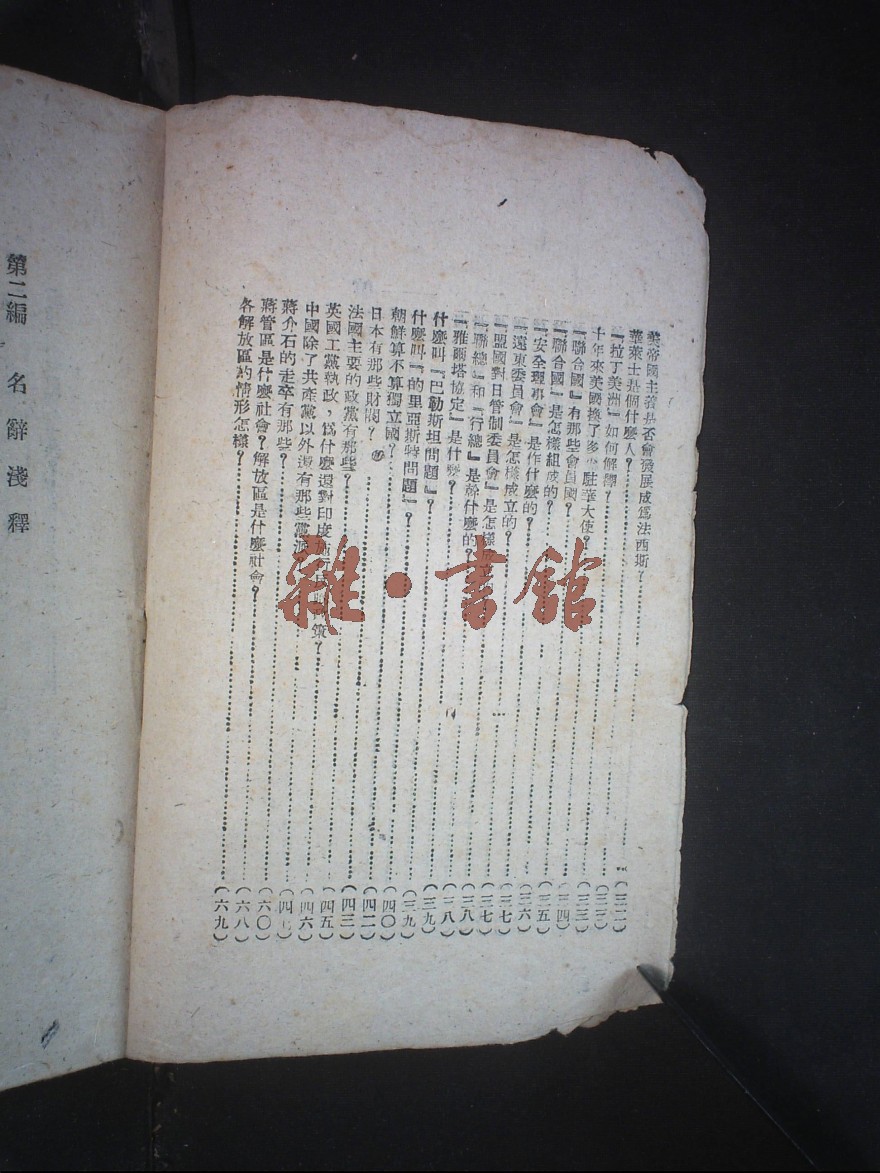 美帝國主義是否會發展成爲法西斯?
華萊士是個什麼人?(三二)
『拉丁美洲』如何解釋?(三三)
十年來美國換了多少駐華大使?(三三)
『聯合國』有那些會員國?(三四)
『聯合國』是怎樣組成的?(三五)
『安全理事會』是作什麼的?(三六)
『遠東委員會』是怎樣成立的?(三七)
『盟國對日管制委員會』是怎樣成立(三七)
『聯總』和『行總』是幹什麼的?(三八)
『雅爾塔協定』是什麼?(三八)
什麼叫『巴勒斯坦問題』?(三九)
什麼叫『的里亞斯特問題』?(三九)
朝鮮算不算獨立國?(四〇)
日本有那些財閥?(四二)
法國主要的政黨有那些?(四三)
英國工黨執政,爲什麼還對印度施行 策?(四五)
中國除了共產黨以外還有那些黨派(四六)
蔣介石的走卒有那些?(四七)
蔣管區是什麼社會?解放區是什麼社會?(六〇)
各解放區的情形怎樣?(六八)
(六九)
第二編 名辭淺釋
雜·書館